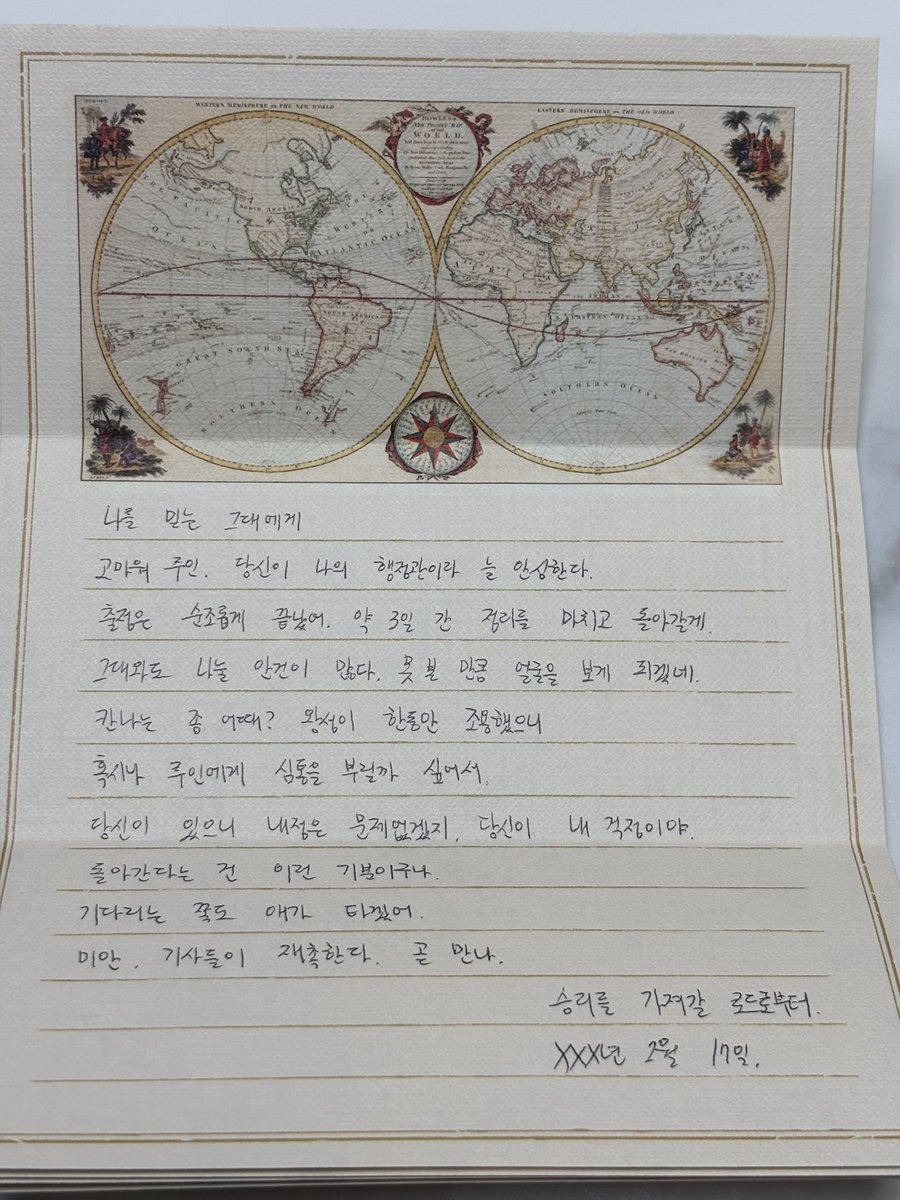 WESTERN HEMISPHERE or THE NEW WORLD
EASTERN HEMISPHERE or THE OLD WORLD
BOWLES's
NEW POCKET MAP
OF THE
WORLD.
EUROPE
NORTH AMERICA
PACIFIC
OCEAN
WESTERN
ATLANTIC OCEAN
SOUTH AMERICA
GREAT SOUTH SEA
SOUTHERN OCEAN
AFRICA
INDIAN
EASTERN OCEAN
SOUTHERN OCEAN
AFRICA
AMERICA
나를 믿는 그대에게
고마워 루인. 당신이 나의 행정관이라 늘 안심한다.
출정은 순조롭게 끝났어. 약 3일 간 정리를 마치고 돌아갈게.
그대와도 나눌 안건이 많다. 못 본 만큼 얼굴을 보게 되겠네.
칸나는 좀 어때? 왕성이 한동안 조용했으니
혹시나 루인에게 심통을 부릴까 싶어서.
당신이 있으니 내정은 문제없겠지. 당신이 내 걱정이야.
돌아간다는 건 이런 기분이구나.
기다리는 쪽도 애가 타겠어.
미안. 기사들이 재촉한다. 곧 만나.
승리를 가져갈 로드로부터.
XXX년 2월 17일.